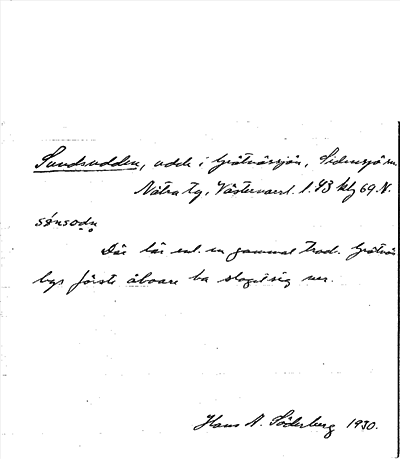 Sundsudden, udde i Grötnässjön, Sidensjö sn
Nätra tg, Västernorrl. l. 43 klg 69. N.
sønsodn
Där lär enl. en gammal trad. Grötnäs
bys förste åboare ha slagit sig ner.
Hans A. Söderberg 1930.